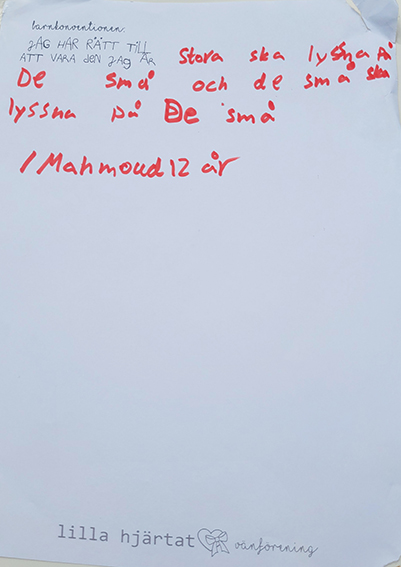 barnkonventionen:
JAG HAR RÄTT TILL
ATT VARA DEN JAG ÄR
stora ska lyssna på
De små och de små ska
lyssna på De små
/Mahmoud 12 år
lilla hjärtat vänförening